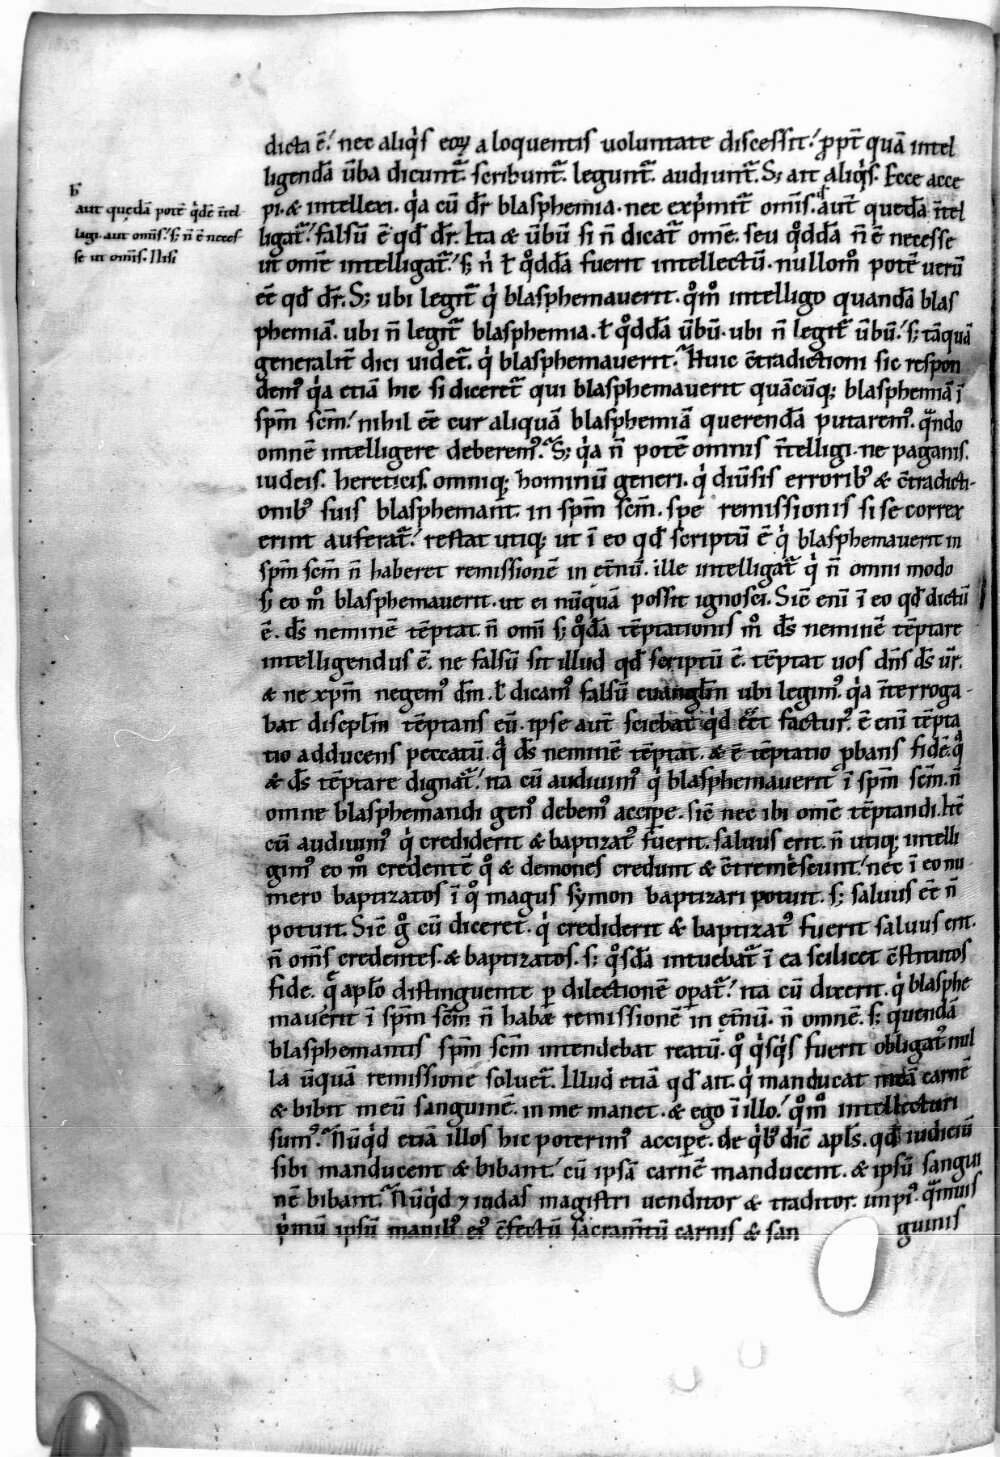 ħ
aut quedã potẽ q̇dẽ ĩtel
ligi. aut omĩs. s; ñ ẽ necef
se ut omĩs. Nisi
dicta ẽ. nec aliq̇s eoꝝ a loquentis uoluntate discessit. ꝓpt̃ quã intel
ligendã ũba dicunt̃. scribunt̃. legunt̃. audiunt̃. S; ait aliq̇s. Ecce acce
pi. & intellexi. q̇a cũ dr̃ blasphemia. nec exp̃mit̃ omĩs. aũt quedã ĩtel
ligat̃. falsũ ẽ qđ dr̃. Ita & ũbũ si ñ dicat̃ omẽ. seu q̊ddã ñ ẽ necesse
ut omẽ intelligat̃. s; ñ ł q̊ddã fuerit intellectũ. nullom̊ potẽ uerũ
eẽ qđ dr̃. S; ubi legit̃ q̇ blasphemauerit. q̊m̊ intelligo quandã blas
phemiã. ubi ñ legit̃ blasphemia. ł q̊ddã ũbũ. ubi ñ legit̃ ũbũ. s; tãquã
generalit̃ dici uidet̃. q̇ blasphemauerit. Huic c̃tradictioni sic respon
dem᷒ q̇a etiã hic si diceret̃ qui blasphemauerit quãcũq; blasphemiã ĩ
sp̃m sc̃m. nihil eẽ cur aliquã blasphemiã querendã putarem᷒. qᷓndo
omnẽ intelligere deberem᷒. S; q̇a ñ potẽ omnis ĩtelligi. ne paganis.
iudeis. hereticis. omniq; hominũ generi. q̇ diũsis errorib᷒ & c̃tradicti-
onib᷒ suis blasphemant in sp̃m sc̃m. spe remissionis si se correx
erint auferat̃. restat utiq; ut ĩ eo qđ scriptũ ẽ q̇ blasphemauerit in
sp̃m sc̃m ñ haberet remissionẽ in et̃nũ. ille intelligat̃ q̇ ñ omni modo
s; eo m̊ blasphemauerit. ut ei nũquã possit ignosci. Sic̃ enĩ ĩ eo qđ dictũ
ẽ. d̃s neminẽ tẽptat. ñ omĩ s; q̊dã tẽptationis m̊ d̃s neminẽ tẽptare
intelligendus ẽ. ne falsũ sit illud qđ scriptũ ẽ. tẽptat uos dñs d̃s ur̃.
& ne xp̃m negem᷒ dm̃. ł dicam᷒ falsũ euangłm ubi legim᷒. q̇a ĩterroga-
bat discipłm tẽptans eũ. ipse aut̃ sciebat q̇d eẽt factur᷒. ẽ enĩ tẽpta
tio adducens peccatũ. qᷓ d̃s neminẽ tẽptat. & ẽ tẽptatio ꝓbans fidẽ. qᷓ
& d̃s tẽptare dignat̃. ita cũ audiuim᷒ q̇ blasphemauerit ĩ sp̃m sc̃m. ñ
omne blasphemandi gen᷒ debem᷒ accipe. sic̃ nec ibi omẽ tẽptandi. Itẽ
cũ audiuim᷒ q̇ crediderit & baptizat᷒ fuerit. saluus erit. ñ utiq; intelli
gim᷒ eo m̊ credentẽ q̊ & demones credunt & c̃tremescunt. nec ĩ eo nu-
mero baptizatos ĩ q̊ magus symon baptizari potuit. s; saluus eẽ ñ
potuit. Sic̃ g̊ cũ diceret. q̇ crediderit & baptizat᷒ fuerit saluus erit.
ñ omĩs credentes. & baptizatos. s; q̊sdã intuebat̃ ĩ ea scilicet c̃stitutos
fide. qᷓ apło distinguente ꝑ dilectionẽ opat̃. ita cũ dixerit. q̇ blasphe
mauerit ĩ sp̃m sc̃m ñ habæ remissionẽ in et̃nũ. ñ omnẽ. s; quendã
blasphemantis sp̃m sc̃m intendebat reatũ. q̊ q̇sq̇s fuerit obligat᷒ nul
la ũquã remissione soluet̃. Illud etiã qđ ait. q̇ manducat meã carnẽ
& bibit meũ sanguinẽ. in me manet. & ego ĩ illo. q̊m̊ intellecturi
sum᷒. Nũq̇d etiã illos hic poterim᷒ accipe. de q̇b᷒ dic̃ apłs. qđ iudiciũ
sibi manducent & bibant. cũ ipsã carnẽ manducent. & ipsũ sangui
nẽ bibant. Nũq̇d ⁊ iudas magistri uenditor & traditor. impi᷒. qᷓmuis
p̃mũ ipsũ manib᷒ ei᷒ c̃fectũ sacram̃tũ carnis & san guinis